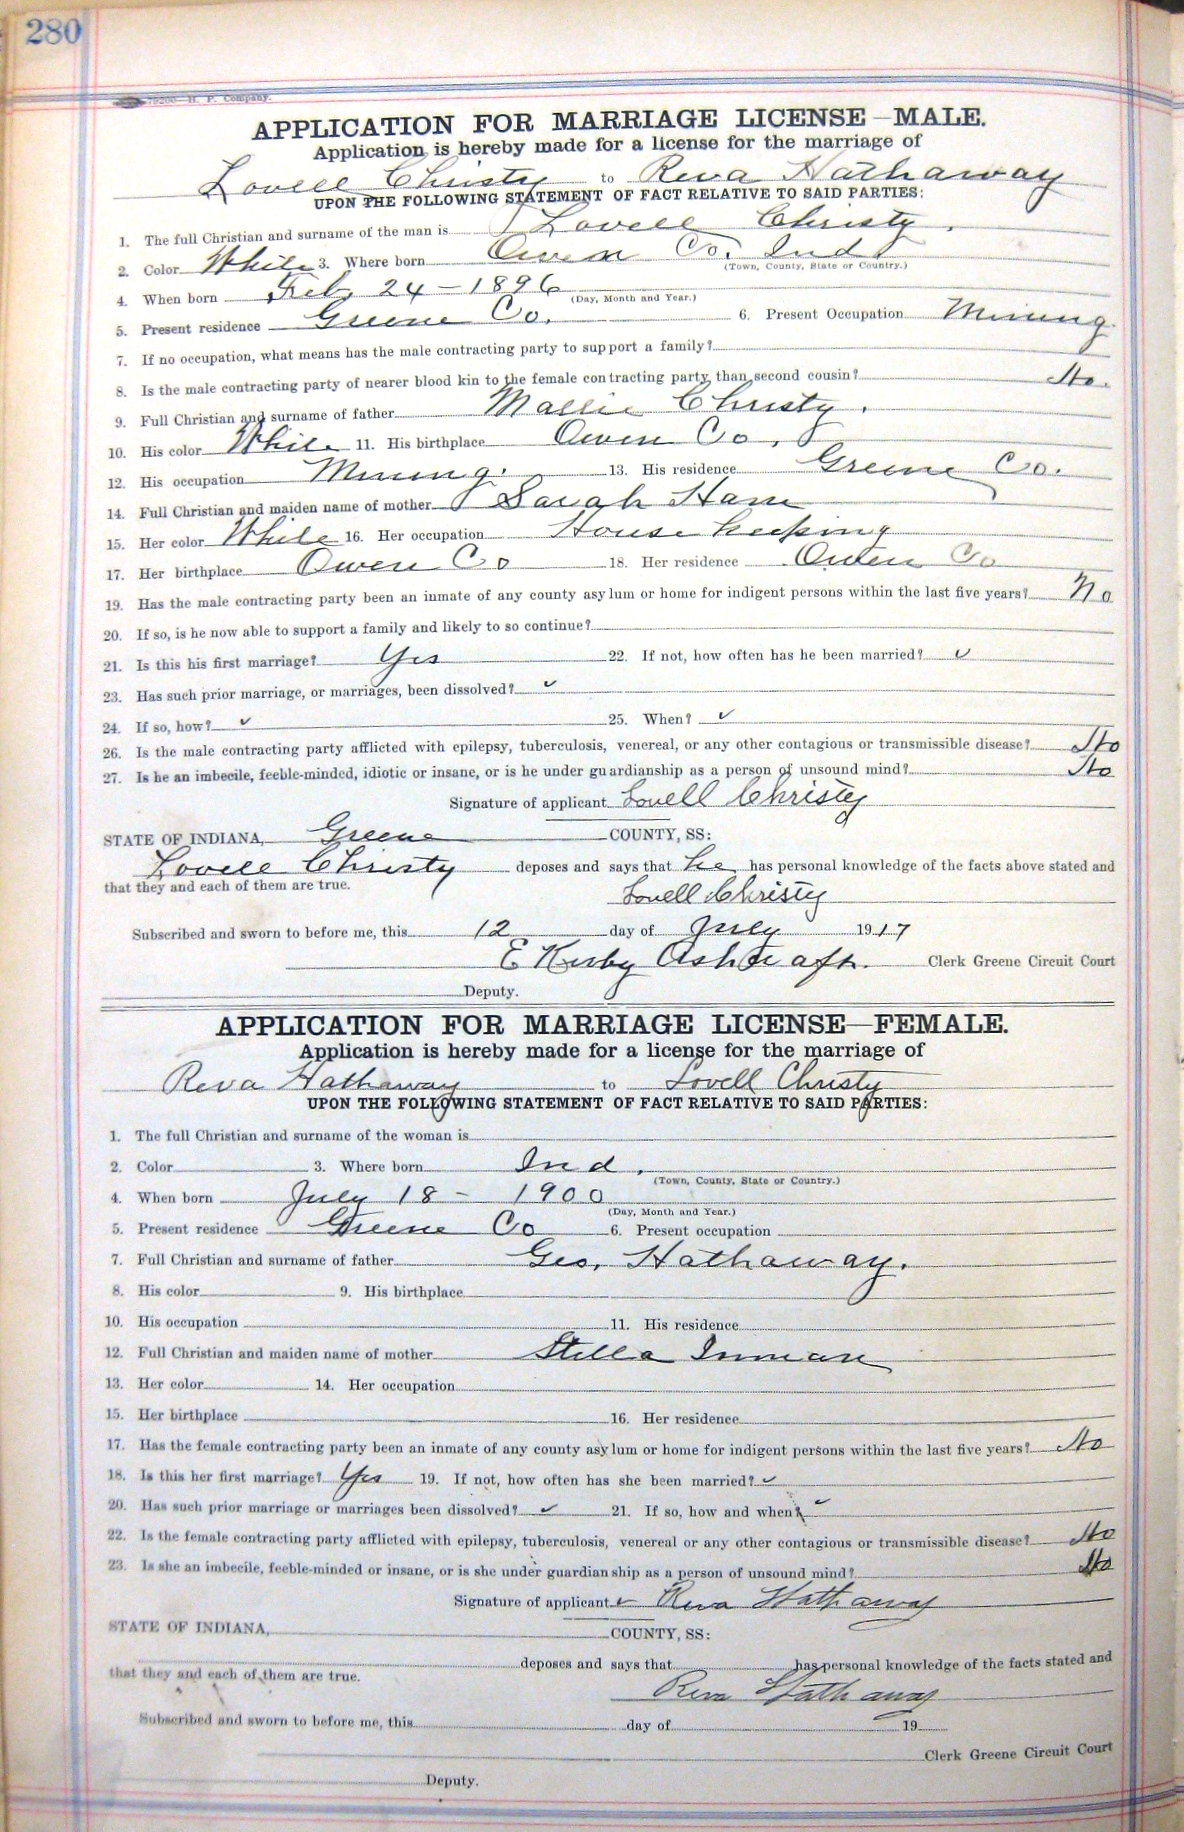 280
79200—H. P. Company.
APPLICATION FOR MARRIAGE LICENSE—MALE.
Application is hereby made for a license for the marriage of
Lovell Christy to Reva Hathaway
UPON THE FOLLOWING STATEMENT OF FACT RELATIVE TO SAID PARTIES:
1. The full Christian and surname of the man is Lovell Christy.
2. Color White 3. Where born Owen Co. Ind
(Town, County, State or Country.)
4. When born Feb. 24 - 1896
(Day, Month and Year.)
5. Present residence Greene Co. 6. Present Occupation Mining.
7. If no occupation, what means has the male contracting party to support a family?
8. Is the male contracting party of nearer blood kin to the female contracting party than second cousin? No.
9. Full Christian and surname of father Mallie Christy.
10. His color White 11. His birthplace Owen Co.
12. His occupation Mining. 13. His residence Greene Co.
14. Full Christian and maiden name of mother Sarah Ham
15. Her color White 16. Her occupation House keeping
17. Her birthplace Owen Co 18. Her residence Owen Co
19. Has the male contracting party been an inmate of any county asylum or home for indigent persons within the last five years? No
20. If so, is he now able to support a family and likely to so continue?
21. Is this his first marriage? Yes 22. If not, how often has he been married? ✓
23. Has such prior marriage, or marriages, been dissolved? ✓
24. If so, how? ✓ 25. When? ✓
26. Is the male contracting party afflicted with epilepsy, tuberculosis, venereal, or any other contagious or transmissible disease? No
27. Is he an imbecile, feeble-minded, idiotic or insane, or is he under guardianship as a person of unsound mind? No
Signature of applicant Lovell Christy
STATE OF INDIANA, Greene COUNTY, SS:
Lovell Christy deposes and says that he has personal knowledge of the facts above stated and
that they and each of them are true.
Lovell Christy
Subscribed and sworn to before me, this 12 day of July 1917
E Kirby Ashcraft. Clerk Greene Circuit Court
Deputy.
APPLICATION FOR MARRIAGE LICENSE—FEMALE.
Application is hereby made for a license for the marriage of
Reva Hathaway to Lovell Christy
UPON THE FOLLOWING STATEMENT OF FACT RELATIVE TO SAID PARTIES:
1. The full Christian and surname of the woman is
2. Color 3. Where born Ind.
(Town, County, State or Country.)
4. When born July 18 - 1900
(Day, Month and Year.)
5. Present residence Greene Co 6. Present occupation
7. Full Christian and surname of father Geo. Hathaway.
8. His color 9. His birthplace
10. His occupation 11. His residence
12. Full Christian and maiden name of mother Stella Inman
13. Her color 14. Her occupation
15. Her birthplace 16. Her residence
17. Has the female contracting party been an inmate of any county asylum or home for indigent persons within the last five years? No
18. Is this her first marriage? Yes 19. If not, how often has she been married? ✓
20. Has such prior marriage or marriages been dissolved? ✓ 21. If so, how and when? ✓
22. Is the female contracting party afflicted with epilepsy, tuberculosis, venereal or any other contagious or transmissible disease? No
23. Is she an imbecile, feeble-minded or insane, or is she under guardianship as a person of unsound mind? No
Signature of applicant ✓ Reva Hathaway
STATE OF INDIANA, COUNTY, SS:
deposes and says that has personal knowledge of the facts stated and
that they and each of them are true.
Reva Hathaway
Subscribed and sworn to before me, this day of 19
Clerk Greene Circuit Court
Deputy.